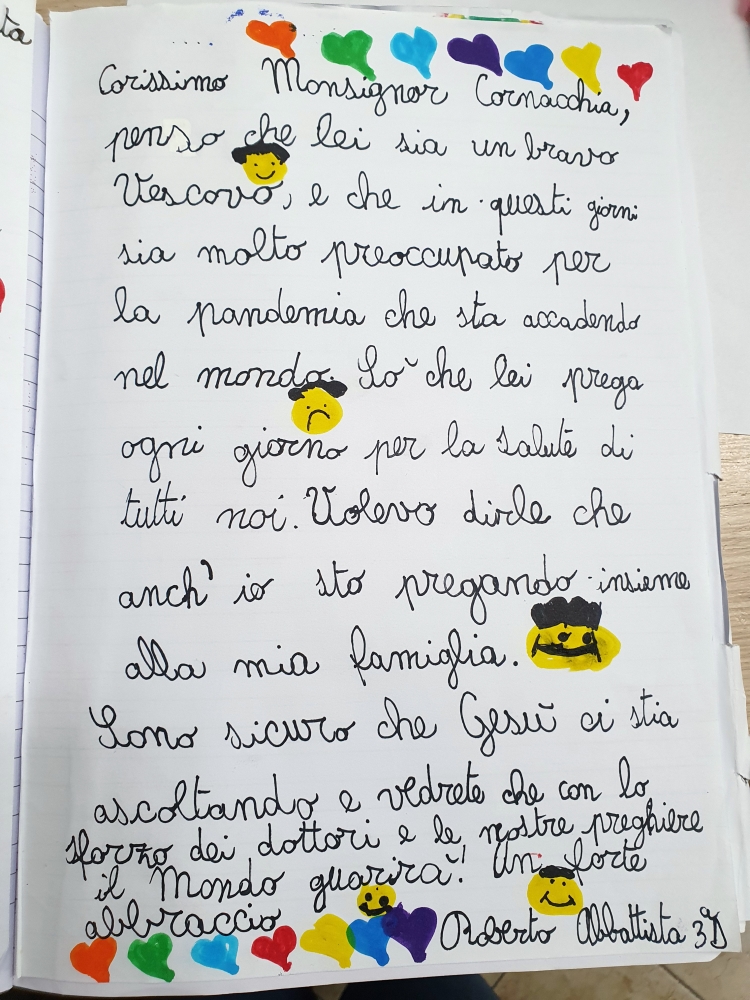 ta
Carissimo Monsignor Cornacchia,
penso che lei sia un bravo
Vescovo, e che in questi giorni
sia molto preoccupato per
la pandemia che sta accadendo
nel mondo. Sò che lei prega
ogni giorno per la salute di
tutti noi. Volevo dirle che
anch' io sto pregando insieme
alla mia famiglia.
Sono sicuro che Gesù ci stia
ascoltando e vedrete che con lo
sforzo dei dottori e le nostre preghiere
il Mondo guarirà! Un forte
abbraccio Roberto Abbattista 3°D